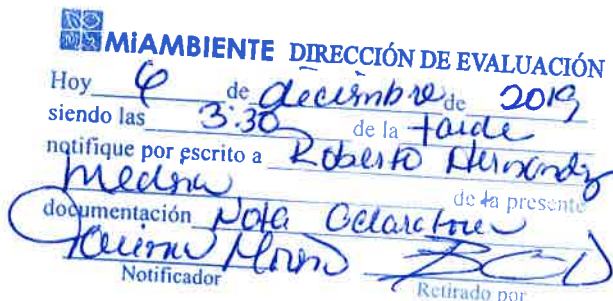 MiAMBIENTE DIRECCIÓN DE EVALUACIÓN
Hoy 6 de diciembre de 2019
siendo las 3:30 de la tarde
notifique por escrito a Roberto Hernandez
Medina de la presente
documentación Nota Aclaratoria
Notificador Retirado por